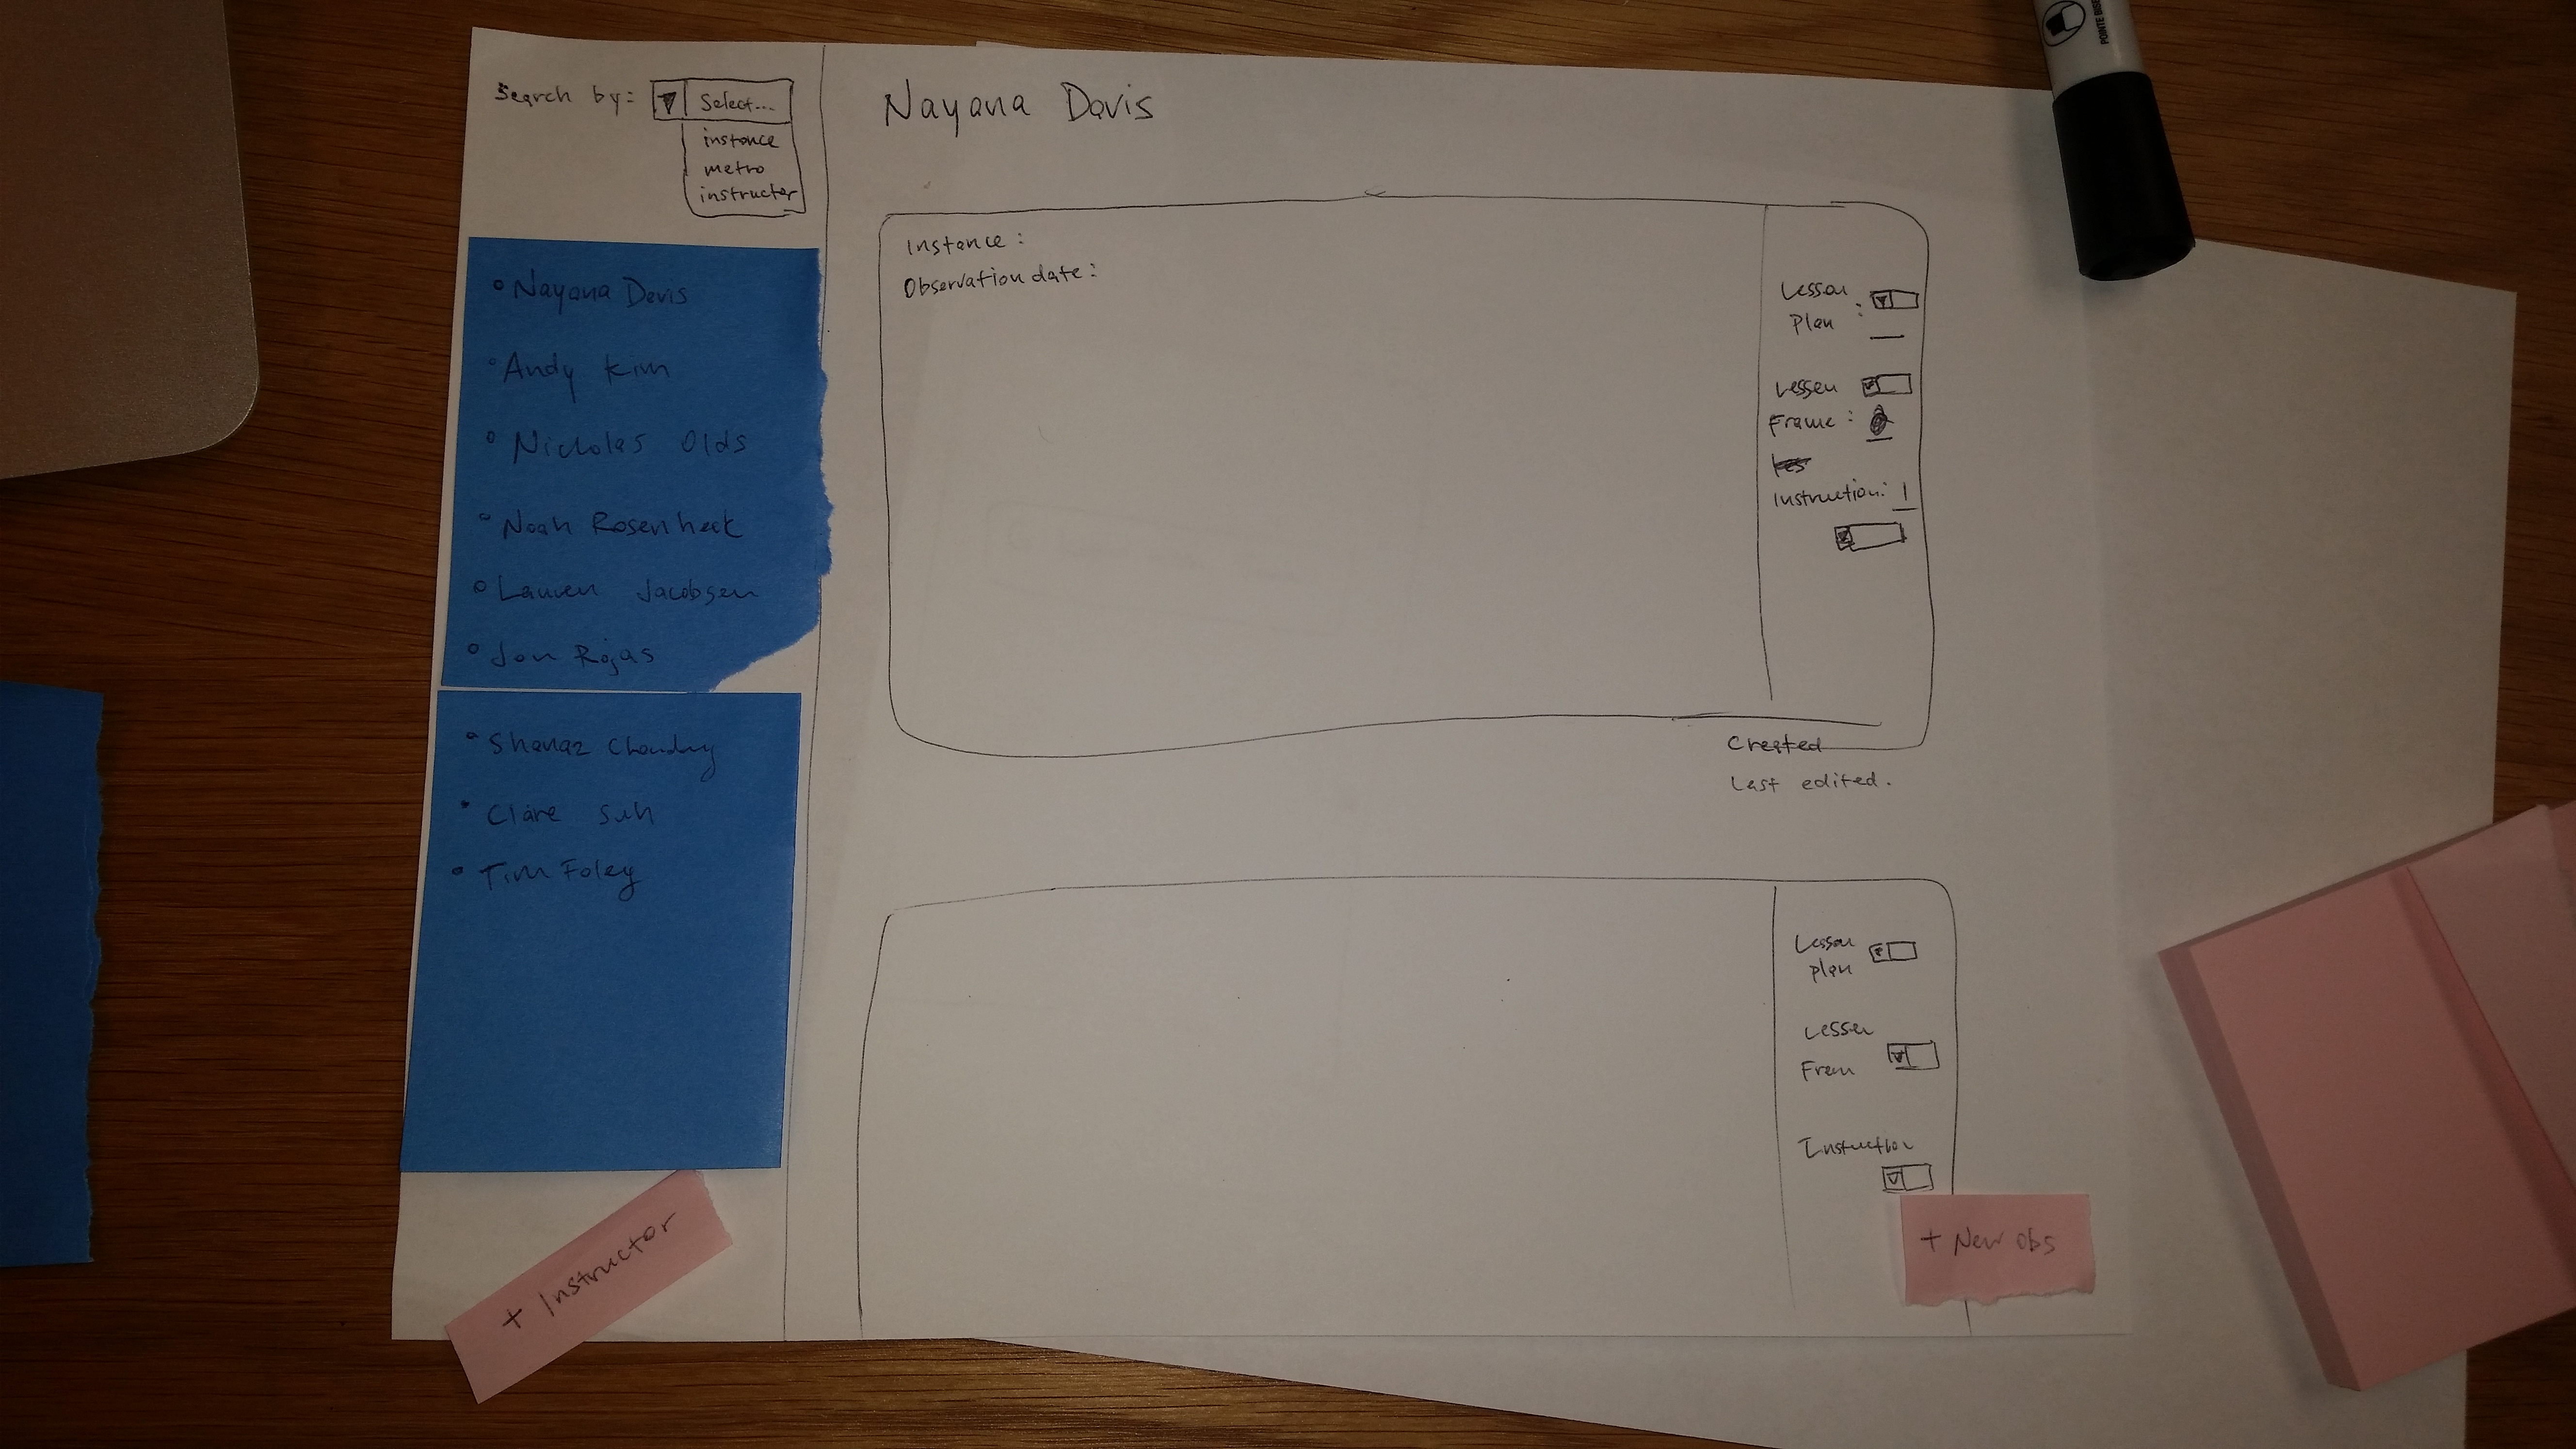 Search by:
Select...
instance
metro
instructor
• Nayana Davis
• Andy Kim
• Nicholas Olds
• Noah Rosenheck
• Lauren Jacobsen
• Jon Rojas
• Shanaz Chowdhry
• Claire Suh
• Tim Foley
+ Instructor
Nayana Davis
Instance:
Observation date:
Lesson
Plan:
Lesson
Frame:
Instruction:
Created
Last edited.
Lesson
Plan
Lesson
Fram
Instruction
+ New obs
POINTE BISE